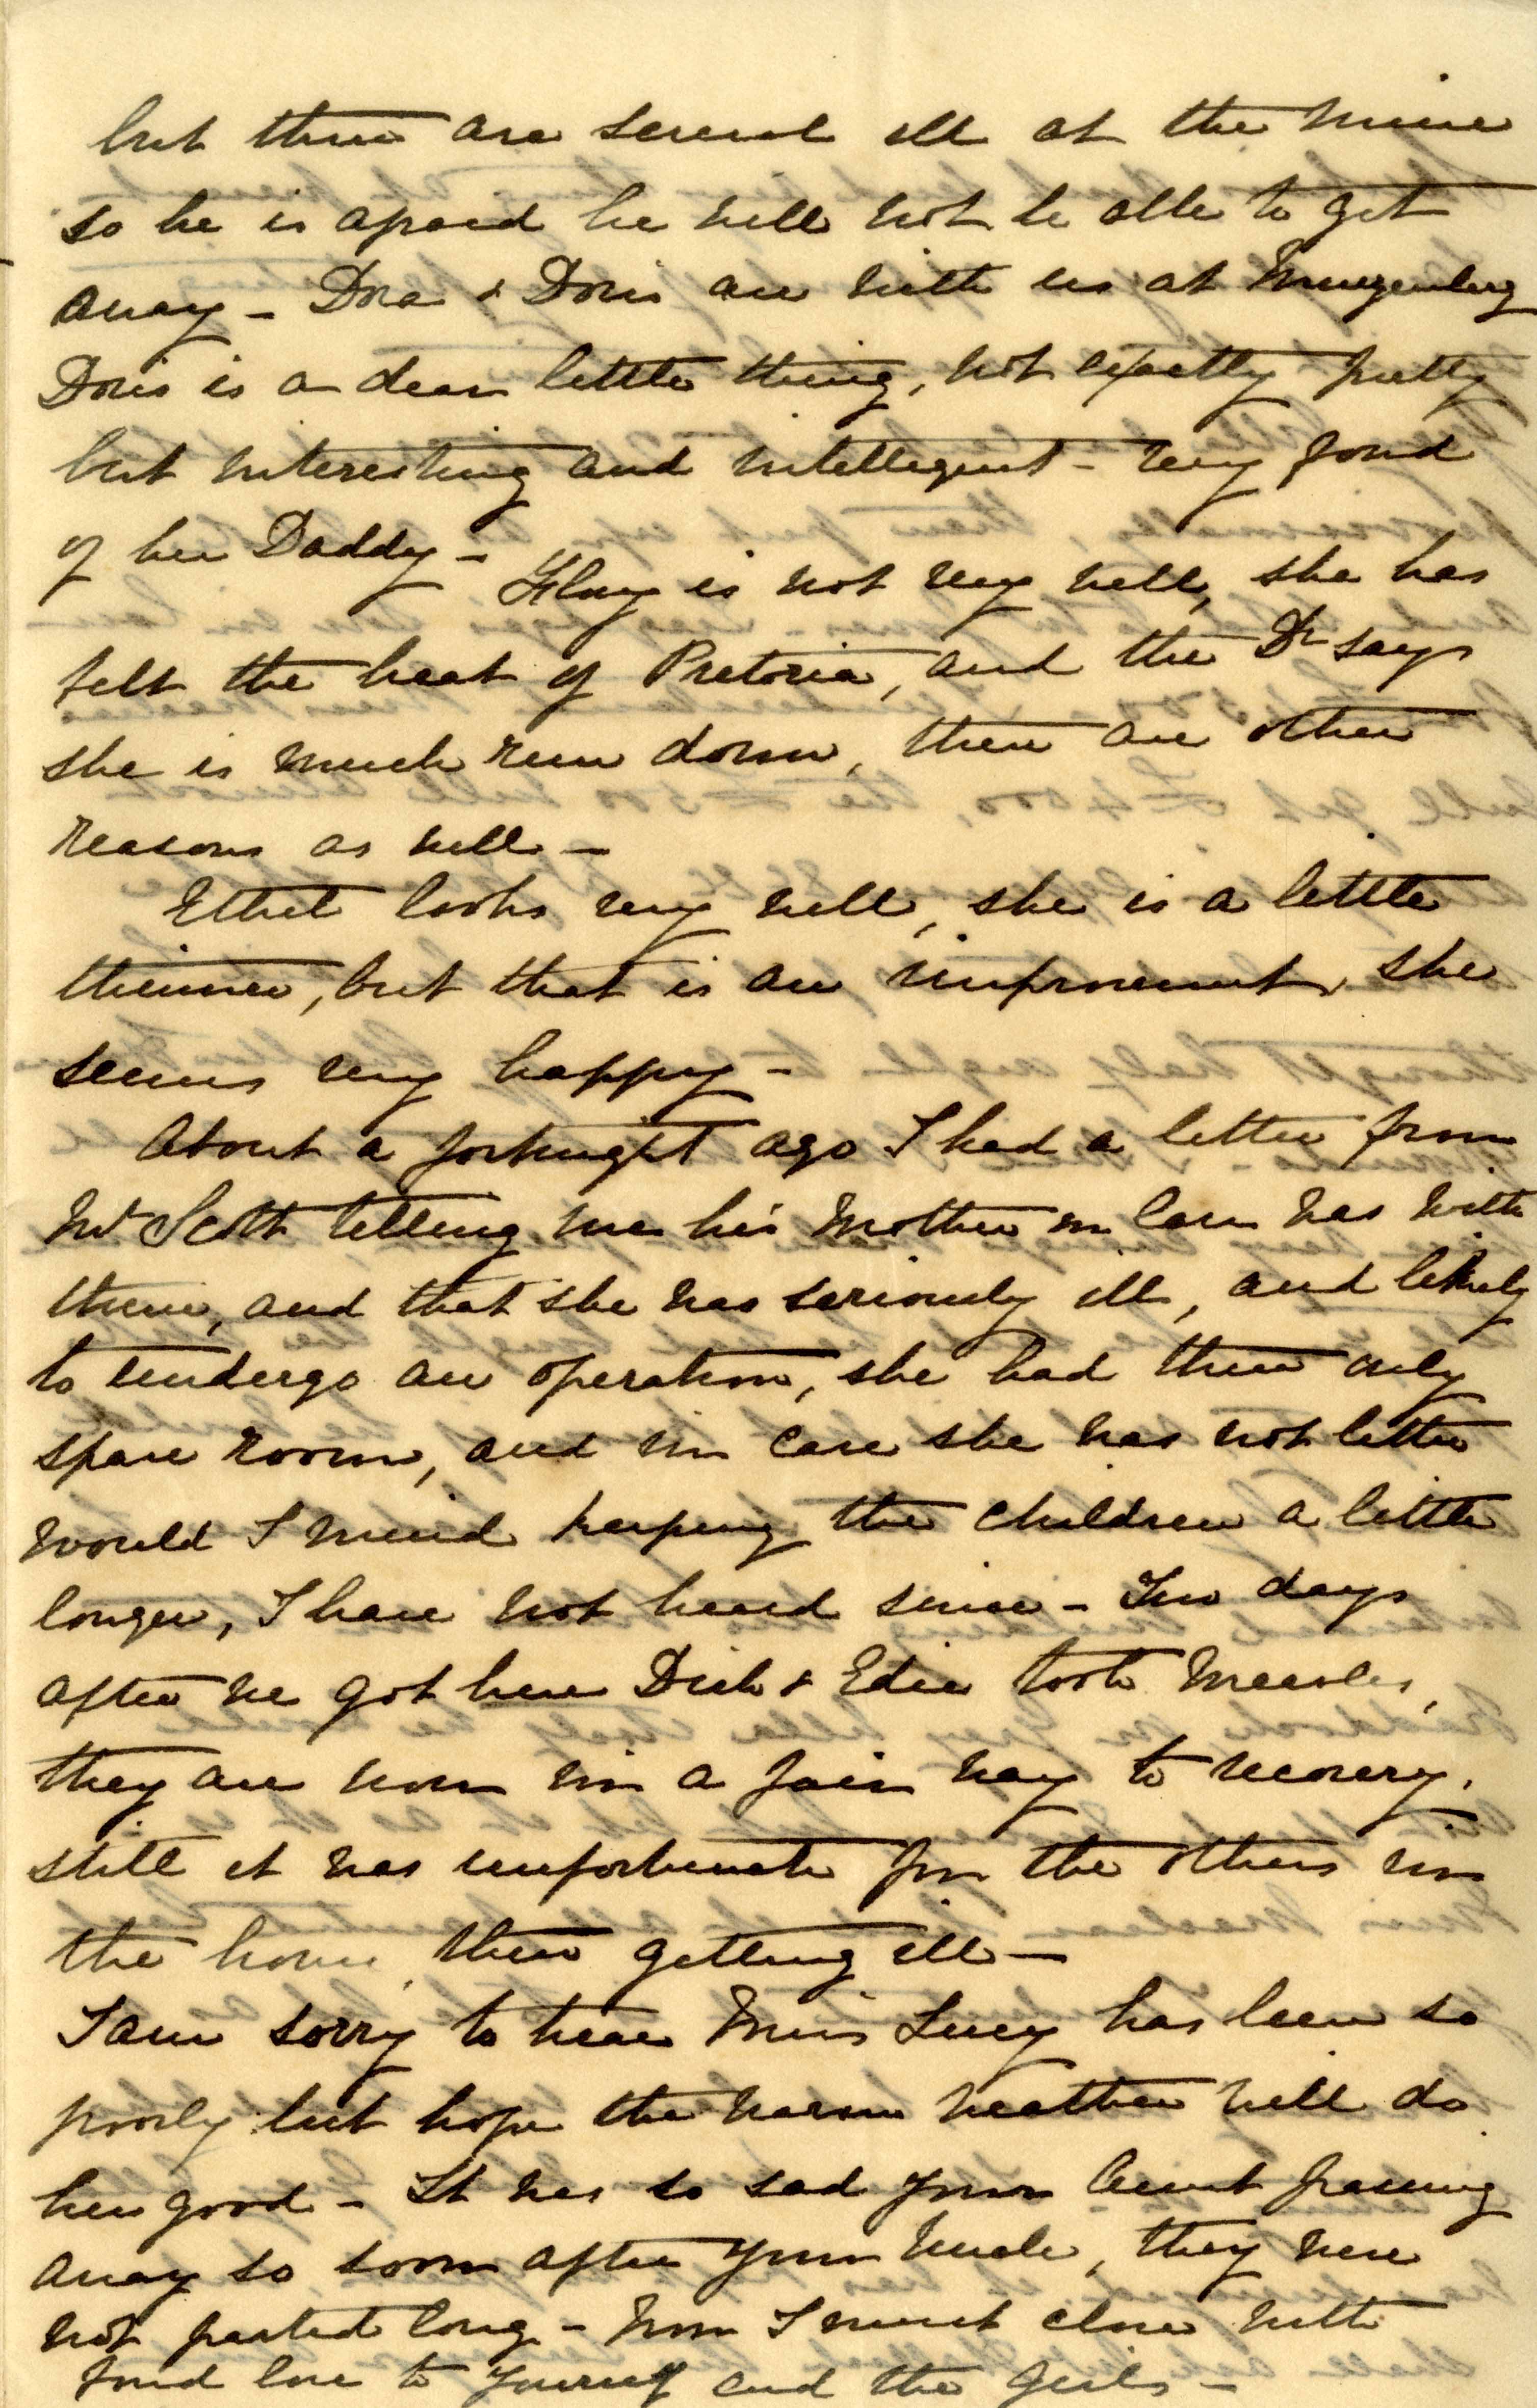 but there are several ill at the mine
so he is afraid he will not be able to get
away - Dora & Doris are with us at Muizenberg
Doris is a dear little thing, not exactly pretty
but interesting and intelligent - very fond
of her Daddy - is not very well, she has
felt the heat of Pretoria, and the Dr says
she is much run down, there are other
reasons as well -
Ethel looks very well, she is a little
thinner, but that is an improvement, she
seems very happy -
About a fortnight ago I had a letter from
Mr Scott telling me his mother in law was with
them, and that she was seriously ill, and likely
to undergo an operation, she had their only
spare room, and in case she was not better
would I mind keeping the children a little
longer, I have not heard since - Two days
after we got here Dick & Edie took measles,
they are now in a fair way to recovery.
still it was unfortunate for the others in
the house, their getting ill -
I am sorry to hear Miss Lucy has been so
poorly but hope the warm weather will do
her good - It was so sad your Aunt passing
away so soon after your Uncle, they were
not parted long - Now I must close with
fond love to yourself and the girls -